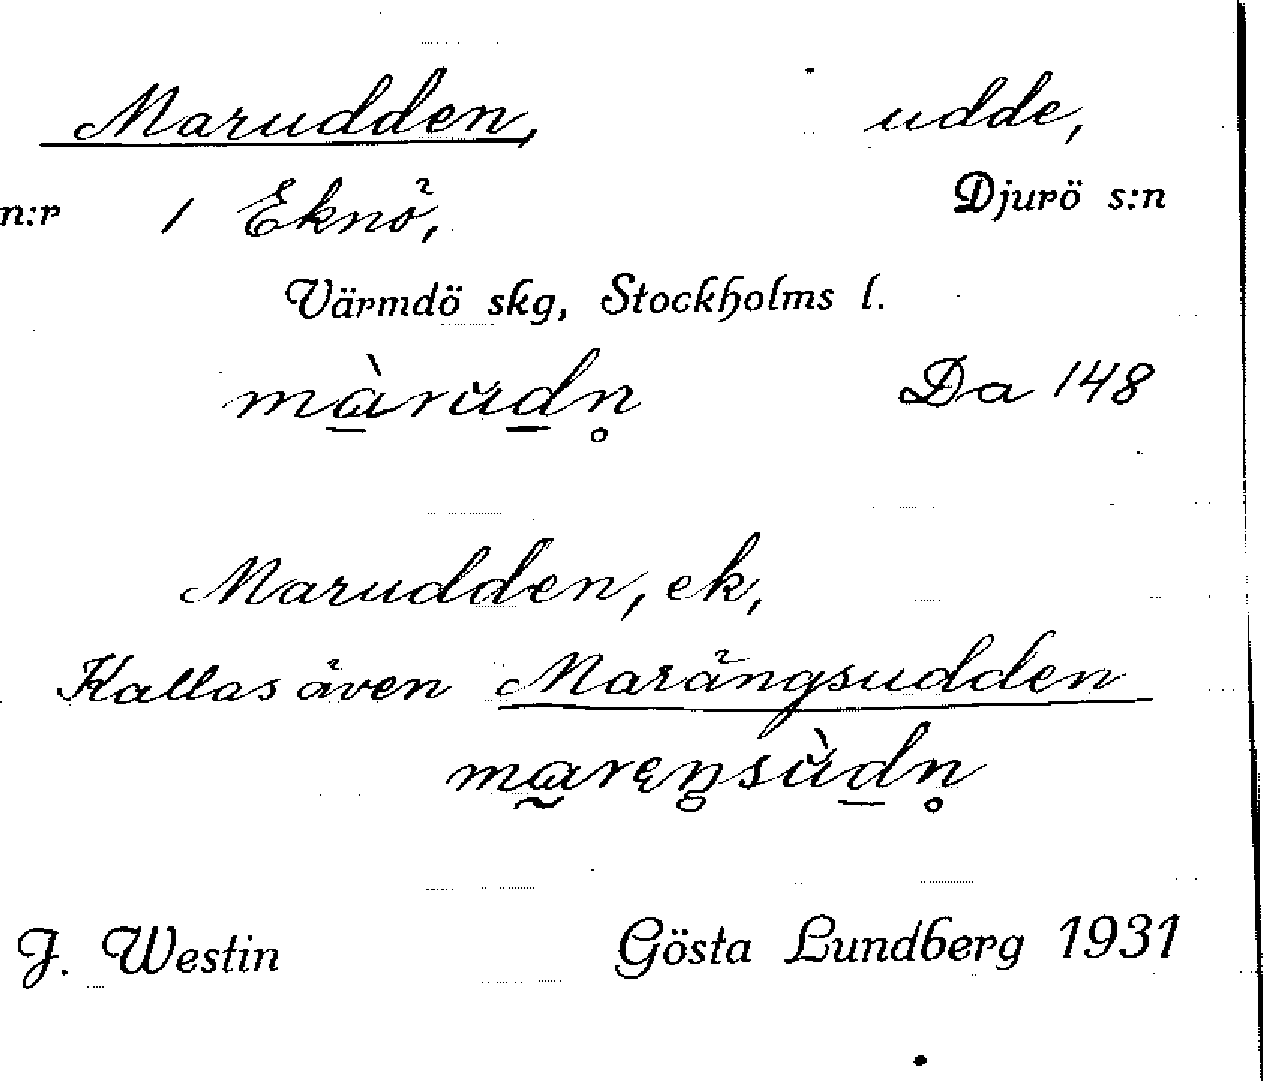 Marudden, udde,
n:r 1 Eknö, Djurö s:n
Värmdö skg, Stockholms l.
màrudn̥ Da 148
Marudden, ek,
Kallas även Marängsudden
marɛŋsùdn̥
J. Westin Gösta Lundberg 1931